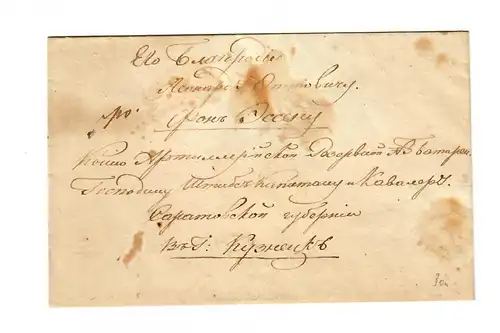 Его Благородію
Оттовичу.
фонъ Эссену
Конно Артиллерійской Батареи
Господину Штабсъ Капитану и Кавалеру.
Саратовской губерніи
Въ г: Кузнецкъ